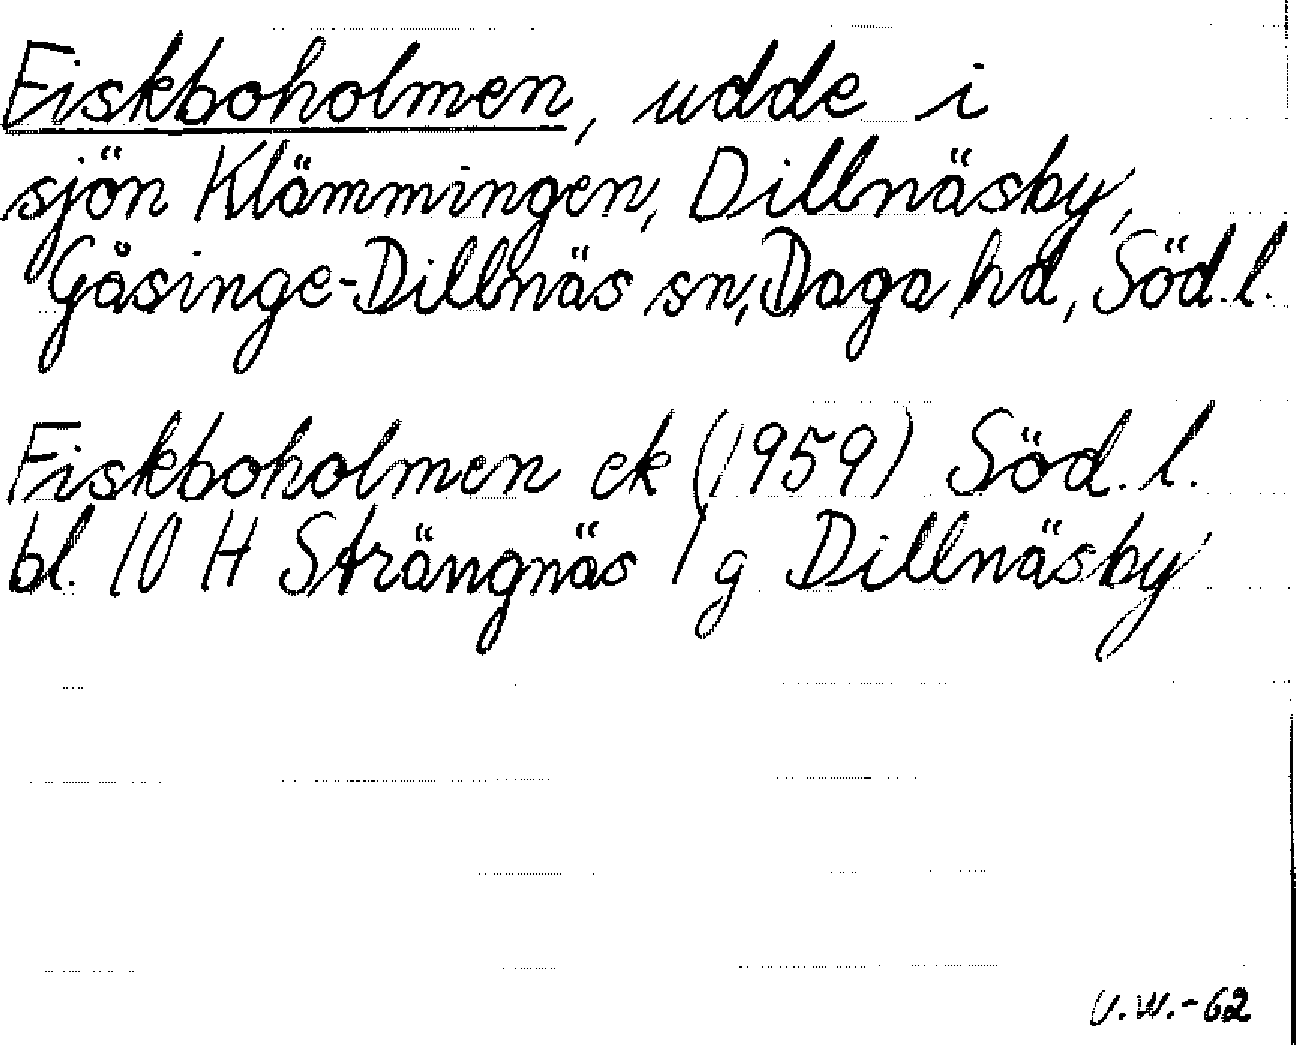 Fiskboholmen, udde i
sjön Klämmingen, Dillnäsby,
Gåsinge-Dillnäs sn, Daga hd, Söd.l.
Fiskboholmen ek (1959) Söd.l.
bl. 10 H Strängnäs 1 g Dillnäsby
U.W.-62